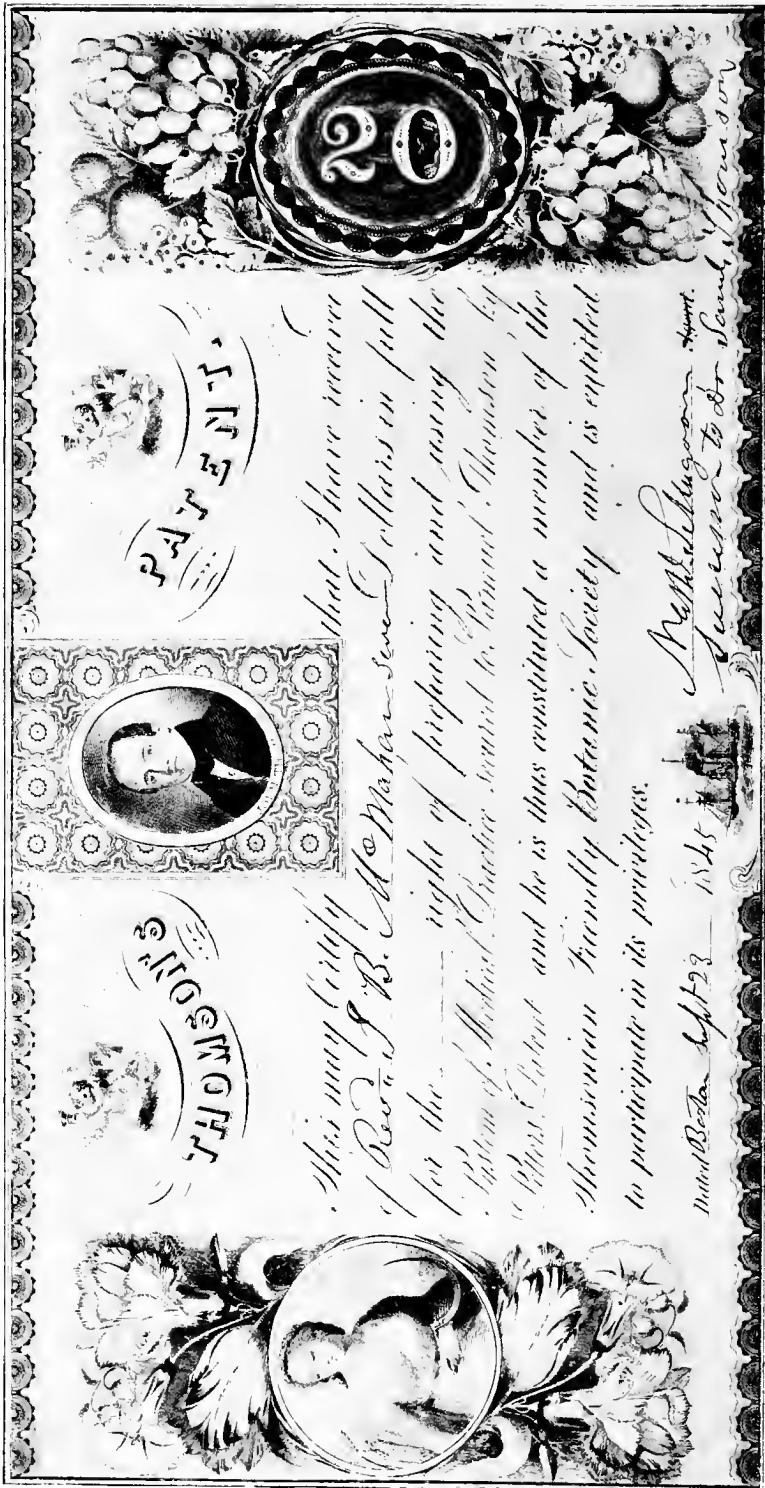 THOMSON'S PATENT.
20
This may Certify that I have receive
of Revd J B. McMahan Seven Dollars in full
for the right of preparing and using the
System of Medical Practice secured to Samuel Thomson by
Letters Patent and he is thus constituted a member of the
Thomsonian Friendly Botanic Society and is entitled
to participate in its privileges.
Dated Boston Sept 23 1845
Successor to Dr Saml Thomson